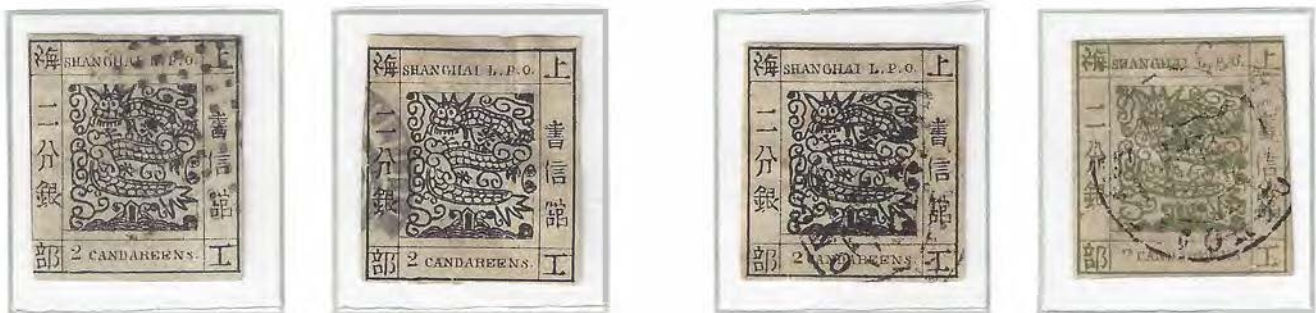 海 SHANGHAI L.P.O. 上
二分銀
書信館
部 2 CANDAREENS. 工
海 SHANGHAI L.P.O. 上
二分銀
書信館
部 2 CANDAREENS. 工
海 SHANGHAI L.P.O. 上
二分銀
書信館
部 2 CANDAREENS. 工
海 SHANGHAI L.P.O. 上
二分銀
部 工